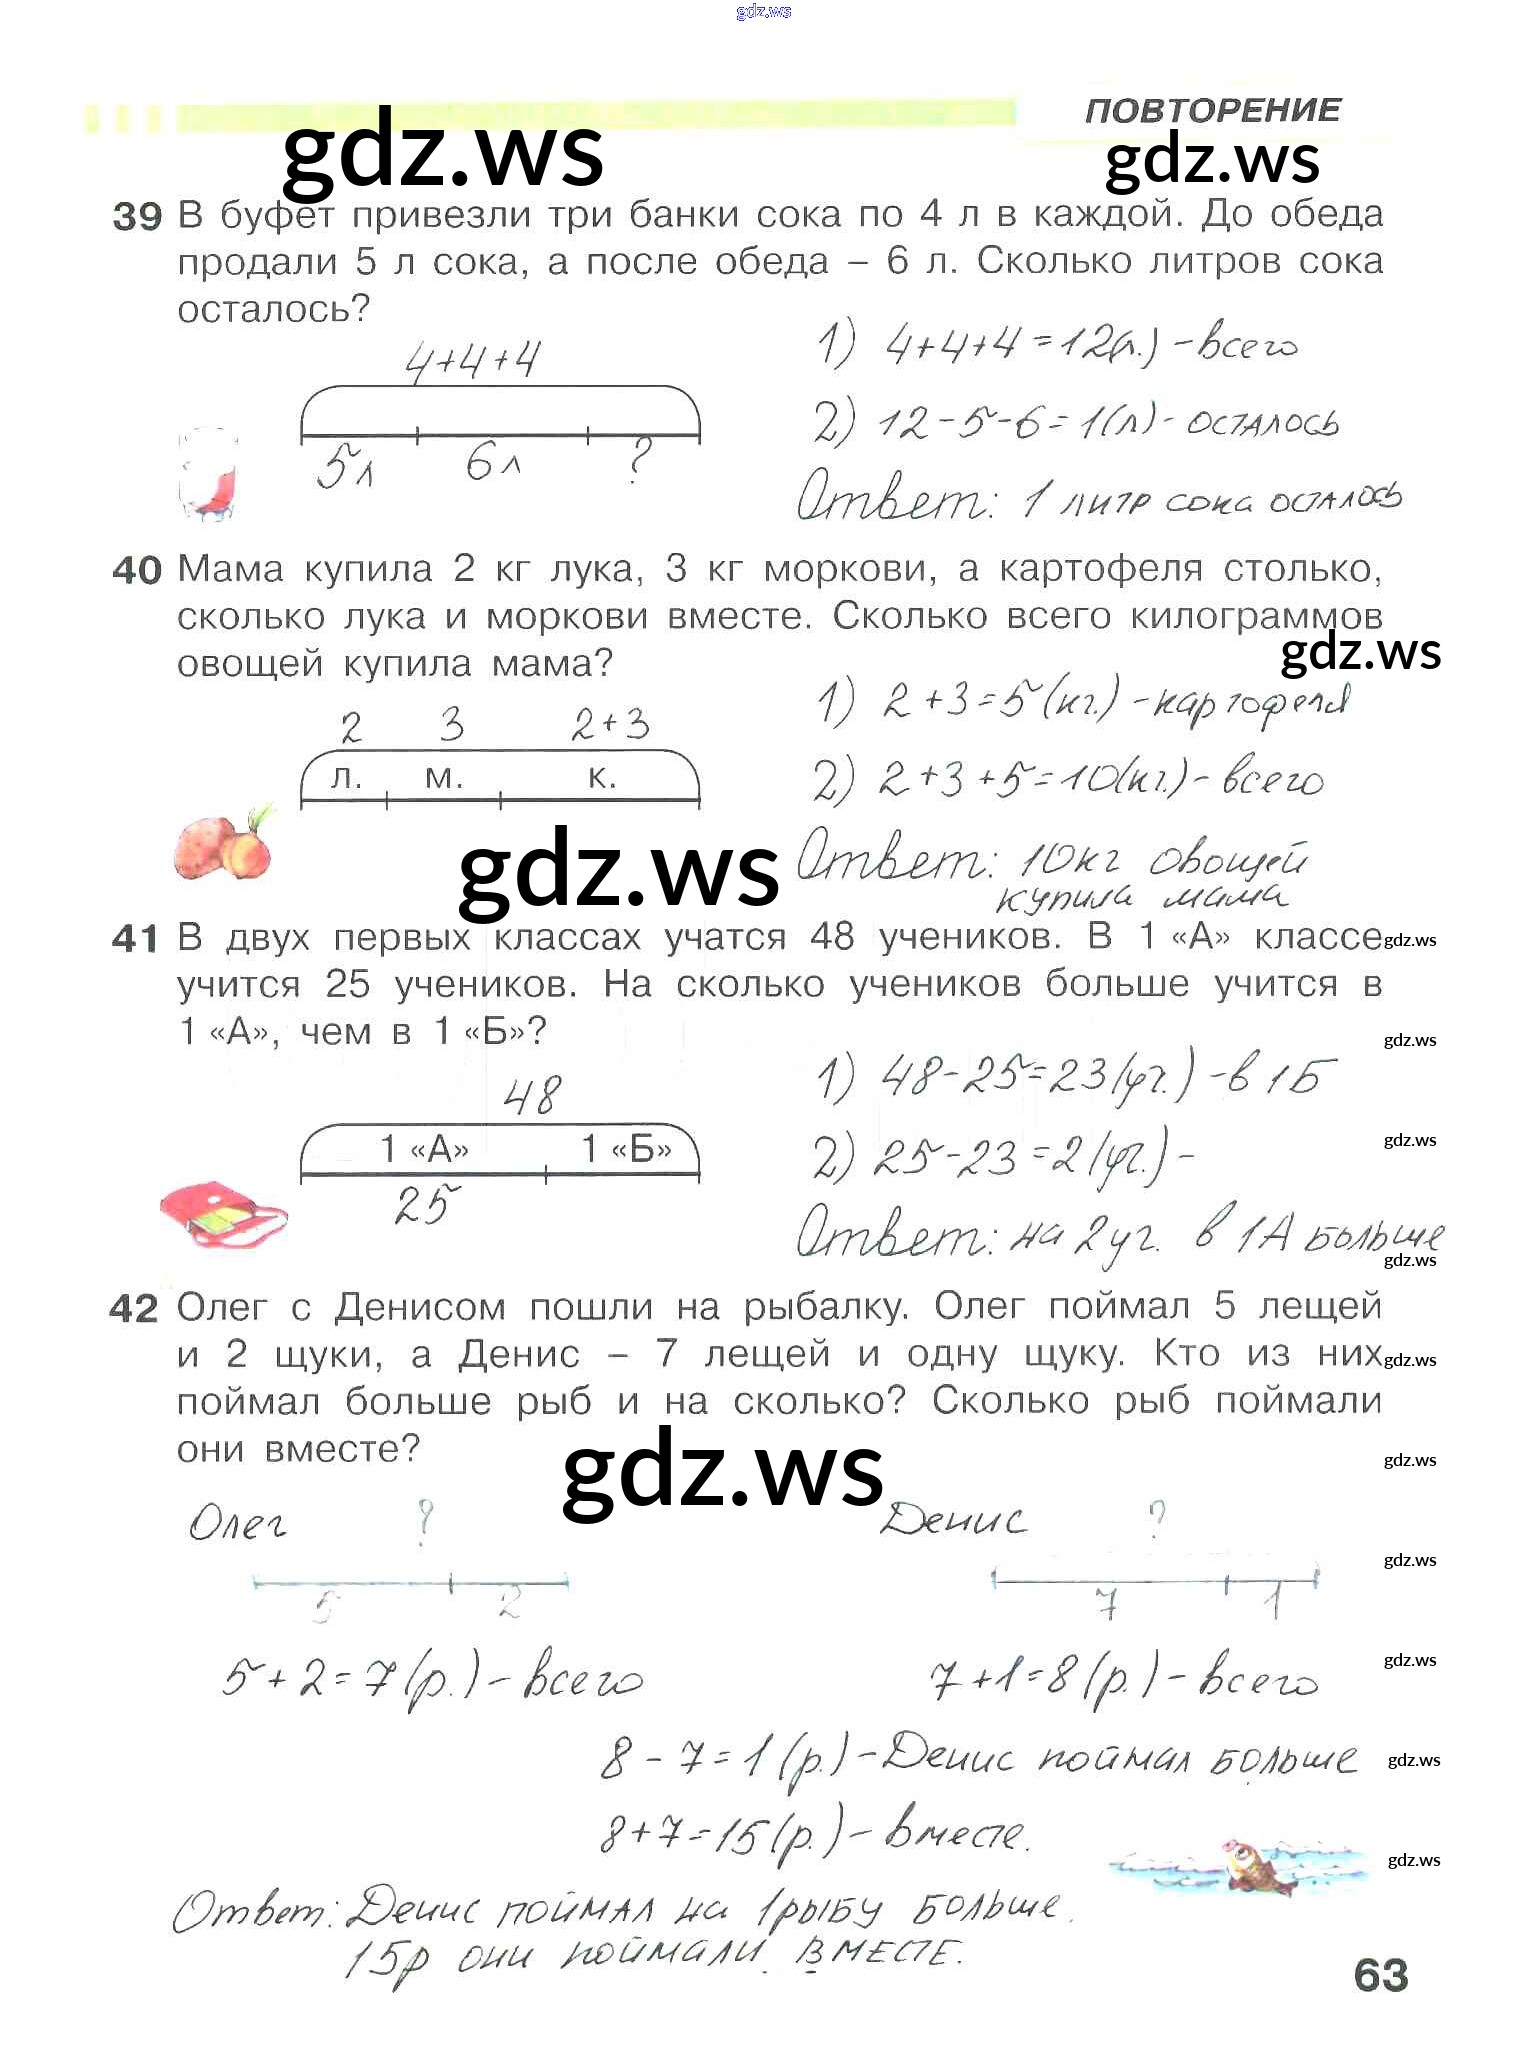 gdz.ws
ПОВТОРЕНИЕ
gdz.ws
gdz.ws
39 В буфет привезли три банки сока по 4 л в каждой. До обеда
продали 5 л сока, а после обеда – 6 л. Сколько литров сока
осталось?
4+4+4
5л 6л ?
1) 4+4+4=12(л.) - всего
2) 12-5-6=1(л) - осталось
Ответ: 1 литр сока осталось
40 Мама купила 2 кг лука, 3 кг моркови, а картофеля столько,
сколько лука и моркови вместе. Сколько всего килограммов
овощей купила мама?
gdz.ws
2 3 2+3
л. м. к.
1) 2+3=5(кг.) - картофеля
2) 2+3+5=10(кг.) - всего
Ответ: 10кг овощей
купила мама
gdz.ws
41 В двух первых классах учатся 48 учеников. В 1 «А» классе
gdz.ws
учится 25 учеников. На сколько учеников больше учится в
1 «А», чем в 1 «Б»?
gdz.ws
48
1 «А» 1 «Б»
25
1) 48-25=23(уч.) - в 1Б
2) 25-23=2(уч.) -
gdz.ws
Ответ: на 2уч. в 1А больше
gdz.ws
42 Олег с Денисом пошли на рыбалку. Олег поймал 5 лещей
и 2 щуки, а Денис – 7 лещей и одну щуку. Кто из них
gdz.ws
поймал больше рыб и на сколько? Сколько рыб поймали
они вместе?
gdz.ws
gdz.ws
Олег ?
5 2
5+2=7(р.) - всего
Денис ?
gdz.ws
7 1
7+1=8(р.) - всего
gdz.ws
8-7=1(р.) - Денис поймал больше
gdz.ws
8+7=15(р.) - вместе.
gdz.ws
Ответ: Денис поймал на 1рыбу больше.
15р они поймали вместе.
63